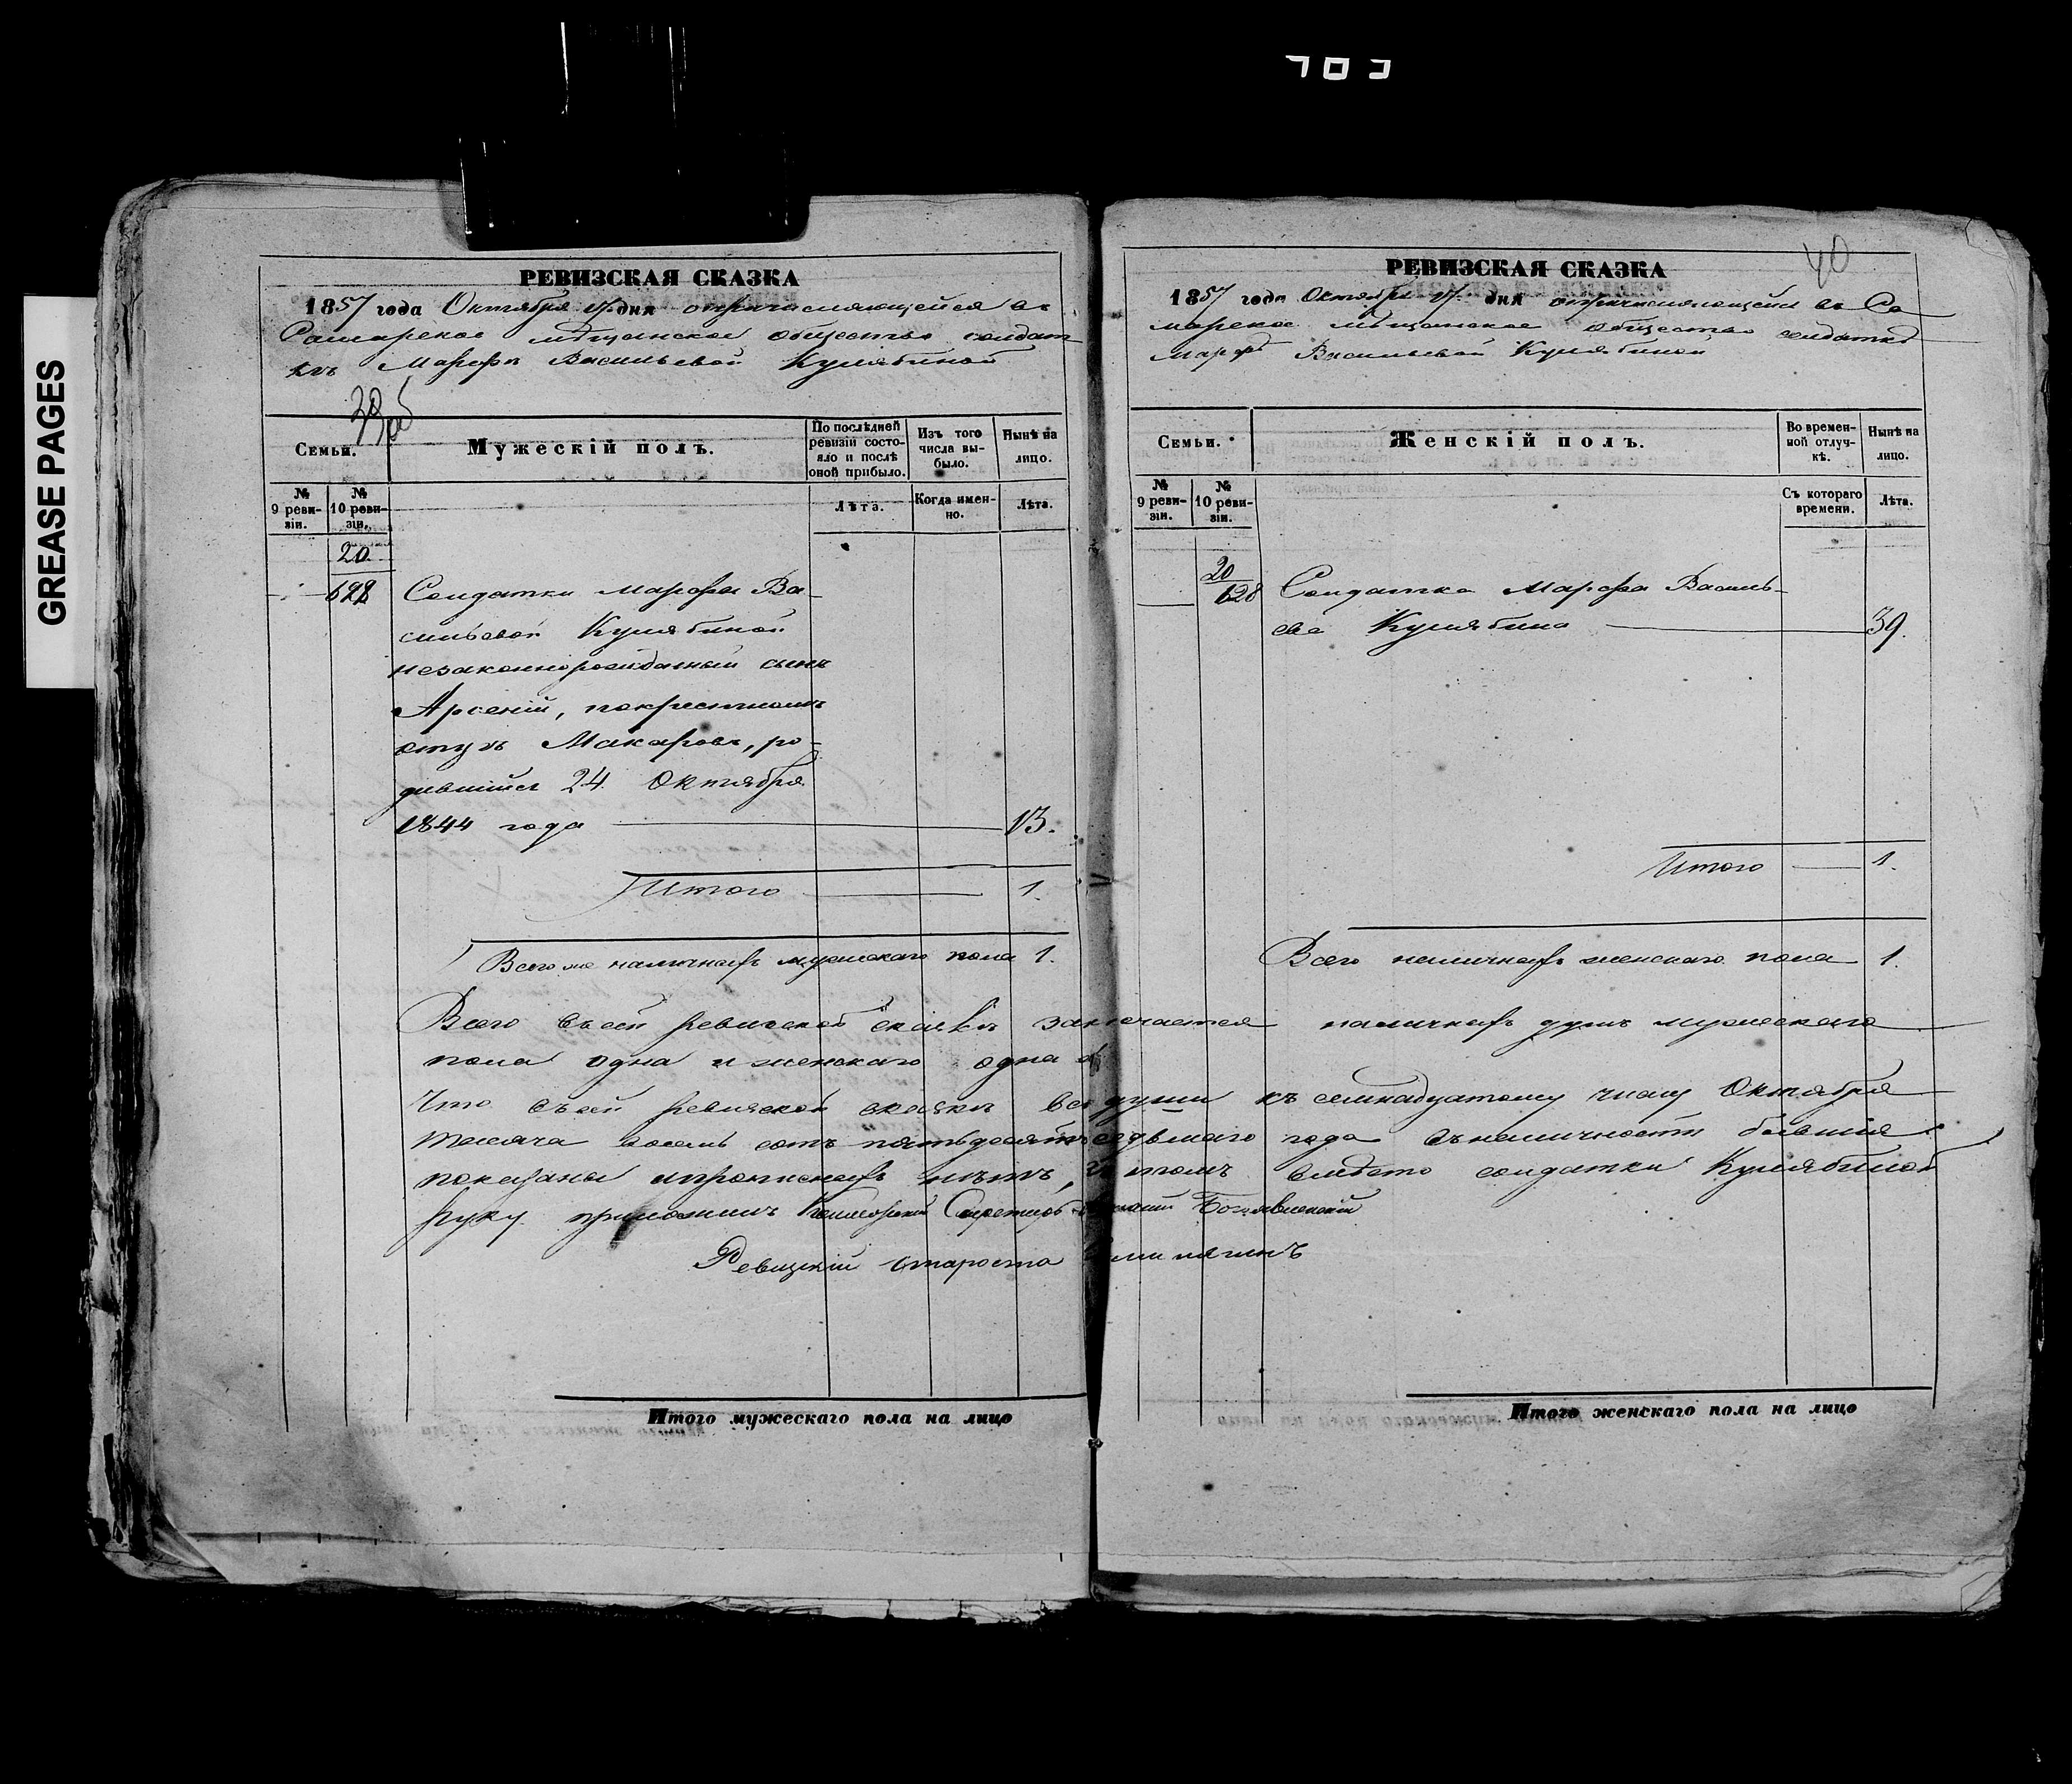 GREASE PAGES
РЕВИЗСКАЯ СКАЗКА
1857 года Октября 17 дня опричисляющейся въ
Самарское мѣщанское общество солдат
кѣ Марфѣ Васильевой Кулябиной
39 об
Семьи.
Мужескій полъ.
По послѣдней ревизіи состояло и послѣ оной прибыло.
Изъ того числа выбыло.
Нынѣ на лицо.
№ 9 ревизіи.
№ 10 ревизіи.
Лѣта.
Когда именно.
Лѣта.
20
628
Солдатки Марфы Ва-
сильевой Кулябиной
незаконнорожденный сынъ
Арсеній, покрестному
отцу Макаровъ, ро-
дившійся 24 Октября
1844 года 13.
Итого 1.
Всего же наличныхъ мужескаго пола 1.
РЕВИЗСКАЯ СКАЗКА
40
1857 года Октября 17 дня опричисляющейся въ Са
марское мѣщанское общество солдаткѣ
Марфѣ Васильевой Кулябиной
Семьи.
Женскій полъ.
Во временной отлучкѣ.
Нынѣ на лицо.
№ 9 ревизіи.
№ 10 ревизіи.
Съ котораго времени.
Лѣта.
20
628
Солдатка Марфа Василь-
ева Кулябина 39.
Итого 1.
Всего наличныхъ женскаго пола 1.
Всего въ сей ревизской сказкѣ заключается наличныхъ душъ мужескаго
пола одна и женскаго одна
Что въ сей ревизской сказкѣ все души къ семнадцатому числу Октября
тысяча восемь сотъ пятьдесятъ седьмаго года въ наличности бывшія
показаны и прописныхъ нѣтъ, въ томъ вмѣсто солдатки Кулябиной
руку приложилъ Коллежскій Секретарь Богоявленскій
Ревизскій староста
Итого мужескаго пола на лицо
Итого женскаго пола на лицо